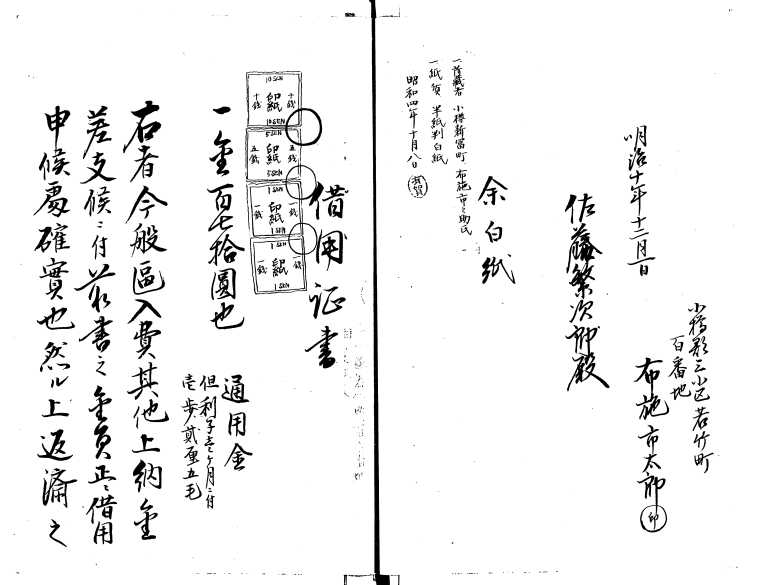 明治十年十二月一日
小樽郡三小区若竹町
百番地
布施市太郎 印
佐藤繁次郎殿
余白紙
一首蔵者 小樽新富町 布施市之助氏
一紙質 半紙判白紙
昭和四年十月八日
借用证書
10 SEN
十銭
印紙
十銭
10 SEN
5 SEN
五銭
印紙
五銭
5 SEN
1 SEN
一銭
印紙
一銭
1 SEN
1 SEN
一銭
印紙
一銭
1 SEN
一金百七拾圓也
通用金
但利子壱ヶ月ニ付
壱歩貮厘五毛
右者今般區入費其他上納金
差支候ニ付前書之金員正ニ借用
申候處確實也然ル上返濟之